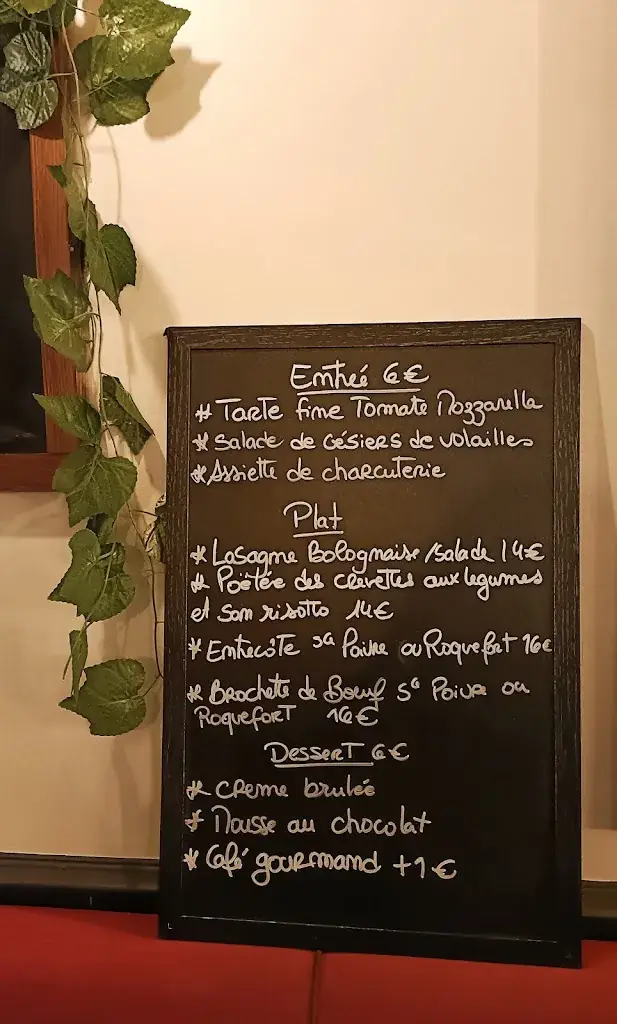 Entrée 6€
* Tarte fine Tomate Mozzarella
* Salade de Gésiers de volailles
* Assiette de charcuterie
Plat
* Lasagne Bolognaise /salade 14€
* Poêtée des crevettes aux legumes
et son risotto 14€
* Entrecôte sa Poivre ou Roquefort 16€
* Brochette de Boeuf sa Poivre ou
Roquefort 16€
Dessert 6€
* Creme brulée
* Mousse au chocolat
* Café gourmand +1€